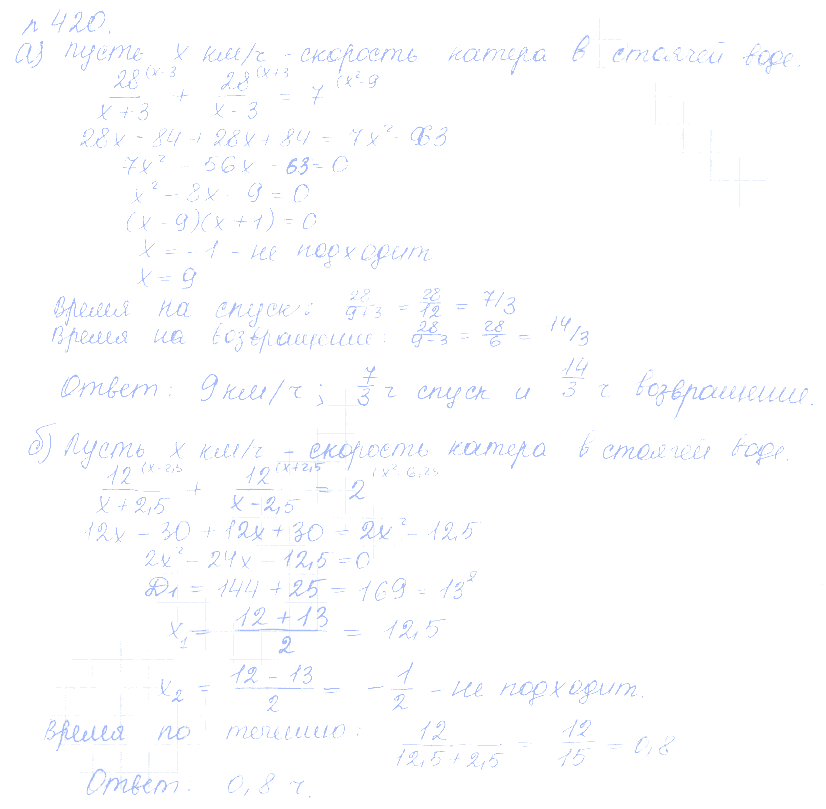 № 420.
а) Пусть x км/ч - скорость катера в стоячей воде.
28/(x+3) (x-3 + 28/(x-3) (x+3 = 7 (x²-9
28x - 84 + 28x + 84 = 7x² - 63
7x² - 56x - 63 = 0
x² - 8x - 9 = 0
(x - 9)(x + 1) = 0
x = - 1 - не подходит
x = 9
Время на спуск: 28/(9+3) = 28/12 = 7/3
Время на возвращение: 28/(9-3) = 28/6 = 14/3
Ответ: 9 км/ч ; 7/3 ч спуск и 14/3 ч возвращение.
б) Пусть x км/ч - скорость катера в стоячей воде.
12/(x+2,5) (x-2,5 + 12/(x-2,5) (x+2,5 = 2 (x²-6,25
12x - 30 + 12x + 30 = 2x² - 12,5
2x² - 24x - 12,5 = 0
D₁ = 144 + 25 = 169 = 13²
x₁ = (12 + 13)/2 = 12,5
x₂ = (12 - 13)/2 = - 1/2 - не подходит.
Время по течению: 12/(12,5+2,5) = 12/15 = 0,8
Ответ: 0,8 ч.